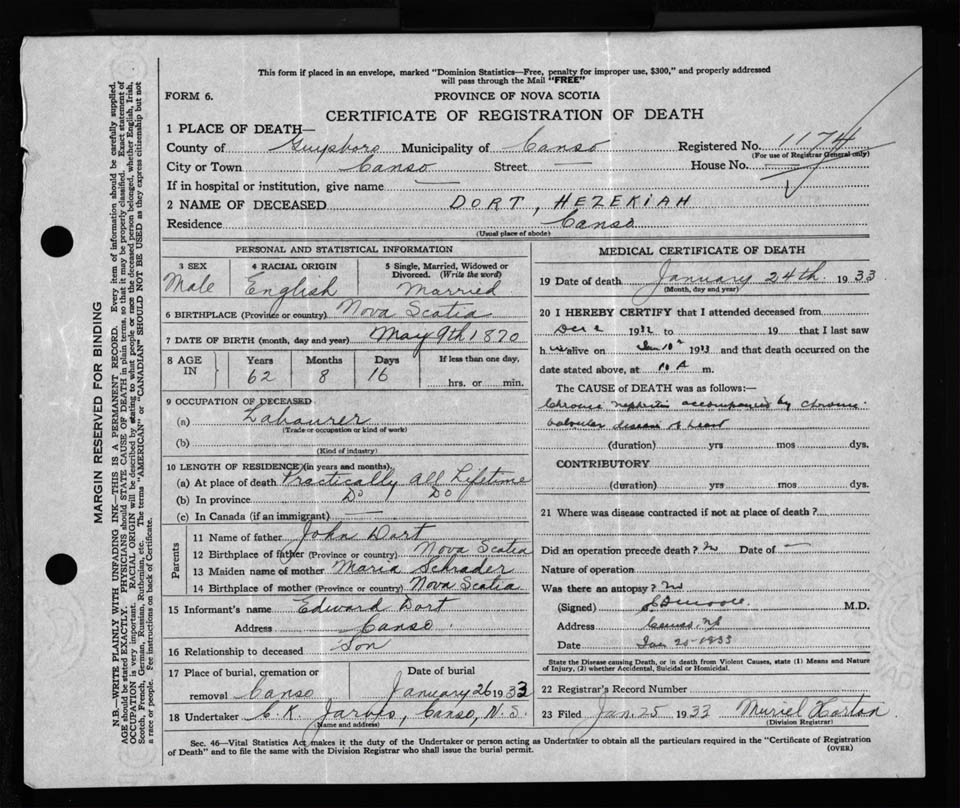 This form if placed in an envelope, marked "Dominion Statistics—Free, penalty for improper use, $300," and properly addressed
will pass through the Mail "FREE"
FORM 6.
PROVINCE OF NOVA SCOTIA
CERTIFICATE OF REGISTRATION OF DEATH
1 PLACE OF DEATH—
County of Guysboro Municipality of Canso Registered No. 1174
(For use of Registrar General only)
City or Town Canso Street — House No. —
If in hospital or institution, give name —
2 NAME OF DECEASED DORT, HEZEKIAH
Residence Canso
(Usual place of abode)
PERSONAL AND STATISTICAL INFORMATION
3 SEX 4 RACIAL ORIGIN 5 Single, Married, Widowed or
Divorced. (Write the word)
Male English Married
6 BIRTHPLACE (Province or country) Nova Scotia
7 DATE OF BIRTH (month, day and year) May 9th 1870
8 AGE IN Years Months Days If less than one day,
62 8 16 hrs. or min.
9 OCCUPATION OF DECEASED
(a) Labourer
(Trade or occupation or kind of work)
(b)
(Kind of industry)
10 LENGTH OF RESIDENCE (in years and months).
(a) At place of death Practically all Lifetime
(b) In province Do Do
(c) In Canada (if an immigrant) —
Parents
11 Name of father John Dort
12 Birthplace of father (Province or country) Nova Scotia
13 Maiden name of mother Maria Schrader
14 Birthplace of mother (Province or country) Nova Scotia
15 Informant's name Edward Dort
Address Canso.
16 Relationship to deceased Son
17 Place of burial, cremation or Date of burial
removal Canso January 26 1933
18 Undertaker C. K. Jarvis, Canso, N.S.
(Name and address)
MEDICAL CERTIFICATE OF DEATH
19 Date of death January 24th 1933
(Month, day and year)
20 I HEREBY CERTIFY that I attended deceased from
Dec 2 1932 to 19 that I last saw
h im alive on Jan 10th 1933 and that death occurred on the
date stated above, at 10 A m.
The CAUSE of DEATH was as follows:—
Chronic nephritis accompanied by chronic
valvular disease of heart
(duration) yrs mos dys.
CONTRIBUTORY
(duration) yrs mos dys.
21 Where was disease contracted if not at place of death?
Did an operation precede death? No Date of —
Nature of operation
Was there an autopsy? No
(Signed) M.D.
Address Canso, NS
Date Jan 25-1933
State the Disease causing Death, or in death from Violent Causes, state (1) Means and Nature
of Injury, (2) whether Accidental, Suicidal or Homicidal.
22 Registrar's Record Number
23 Filed Jan. 25 1933 Muriel Horton
(Division Registrar)
Sec. 46—Vital Statistics Act makes it the duty of the Undertaker or person acting as Undertaker to obtain all the particulars required in the "Certificate of Registration
of Death" and to file the same with the Division Registrar who shall issue the burial permit. (OVER)
MARGIN RESERVED FOR BINDING
N.B.—WRITE PLAINLY WITH UNFADING INK—THIS IS A PERMANENT RECORD. Every item of information should be carefully supplied.
AGE should be stated EXACTLY. PHYSICIANS should STATE CAUSE OF DEATH in plain terms, so that it may be properly classified. Exact statement of
OCCUPATION is very important. RACIAL ORIGIN will be described by stating to what people or race the deceased person belonged, whether English, Irish,
Scotch, French, German, Russian, Ruthenian, etc. The terms "AMERICAN" or "CANADIAN" SHOULD NOT BE USED as they express citizenship but not
a race or people. See instructions on back of Certificate.